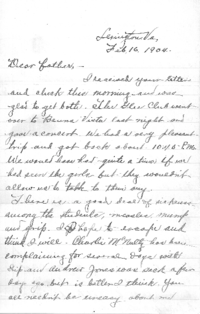 Lexington Va,
Feb 16, 1904.
Dear Father,-
I received your letter
and check this morning and was
glad to get both. The Glee Club went
over to Buena Vista last night and
gave a concert. We had a very pleasant
trip and got back about 10:45 P.M.
We would have had quite a time if we
had seen the girls but they wouldn't
allow us to talk to them any.
There is a good deal of sickness
among the students, measles, mumps
and grip. I hope to escape and
think I will. Charlie McNulty has been
complaining for several days with
Grip and Jones was sick
day but is better I think. You
need not be uneasy about me